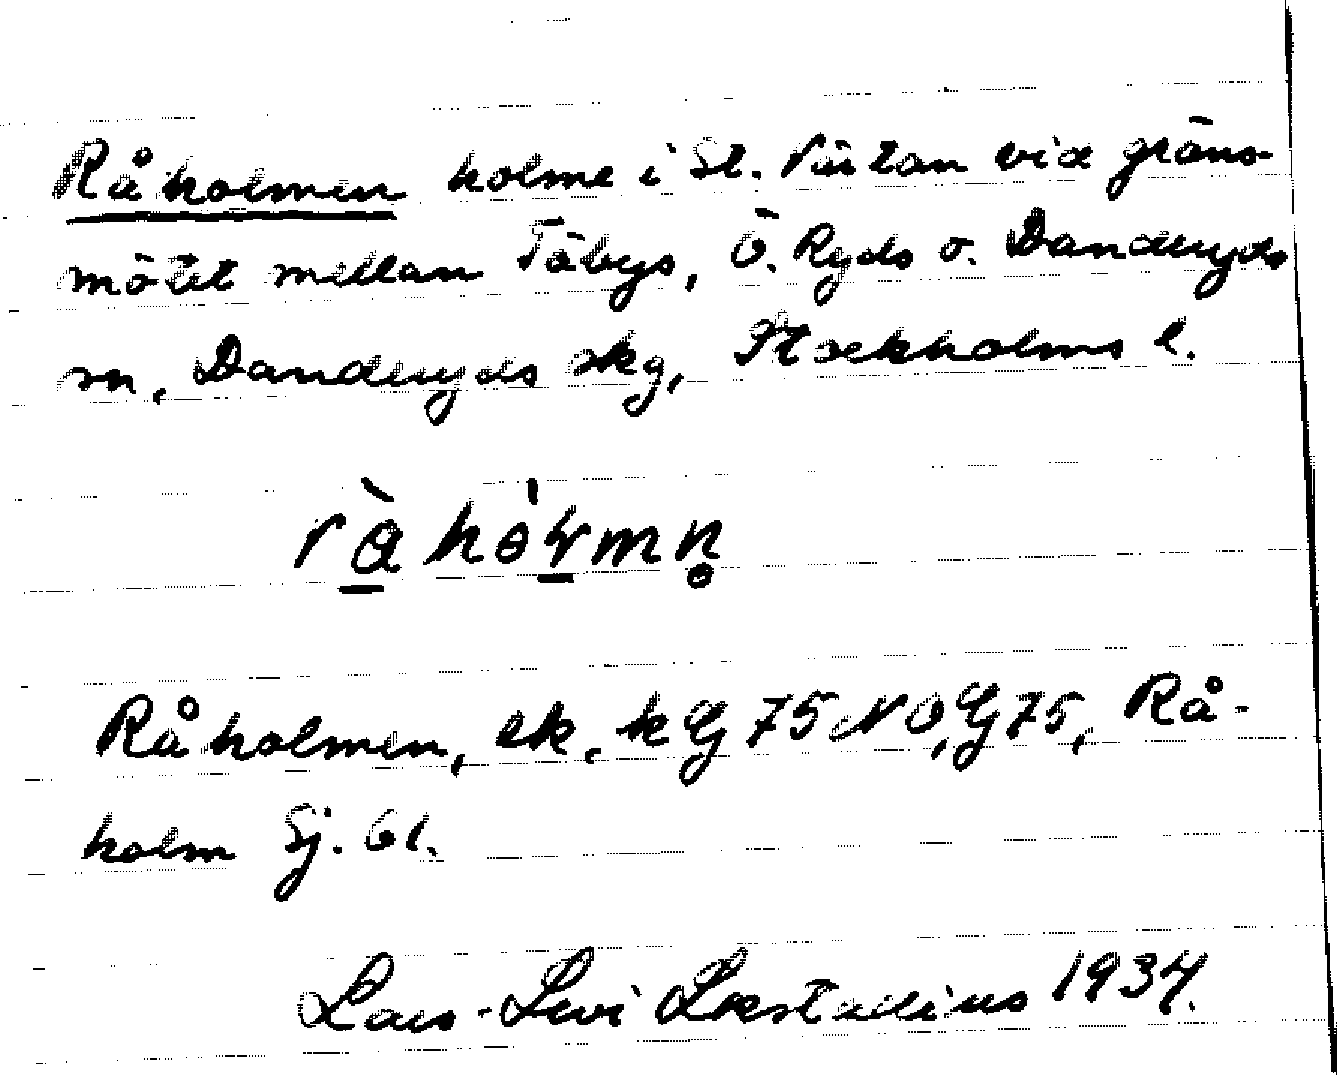 Råholmen holme i St. Värtan vid gräns-
mötet mellan Täbys, Ö. Ryds o. Danderyds
sn, Danderyds skg, Stockholms l.
Råholmen, ek. kG 75 NO, G 75, Rå-
holm Sj. 61.
Lars-Levi Læstadius 1934.